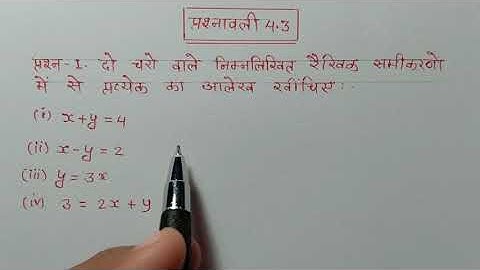 प्रश्नावली 4.3
प्रश्न-1. दो चरो वाले निम्नलिखित रैखिक समीकरणो
में से प्रत्येक का आलेख खींचिए:-
(i) x+y = 4
(ii) x-y = 2
(iii) y = 3x
(iv) 3 = 2x + y